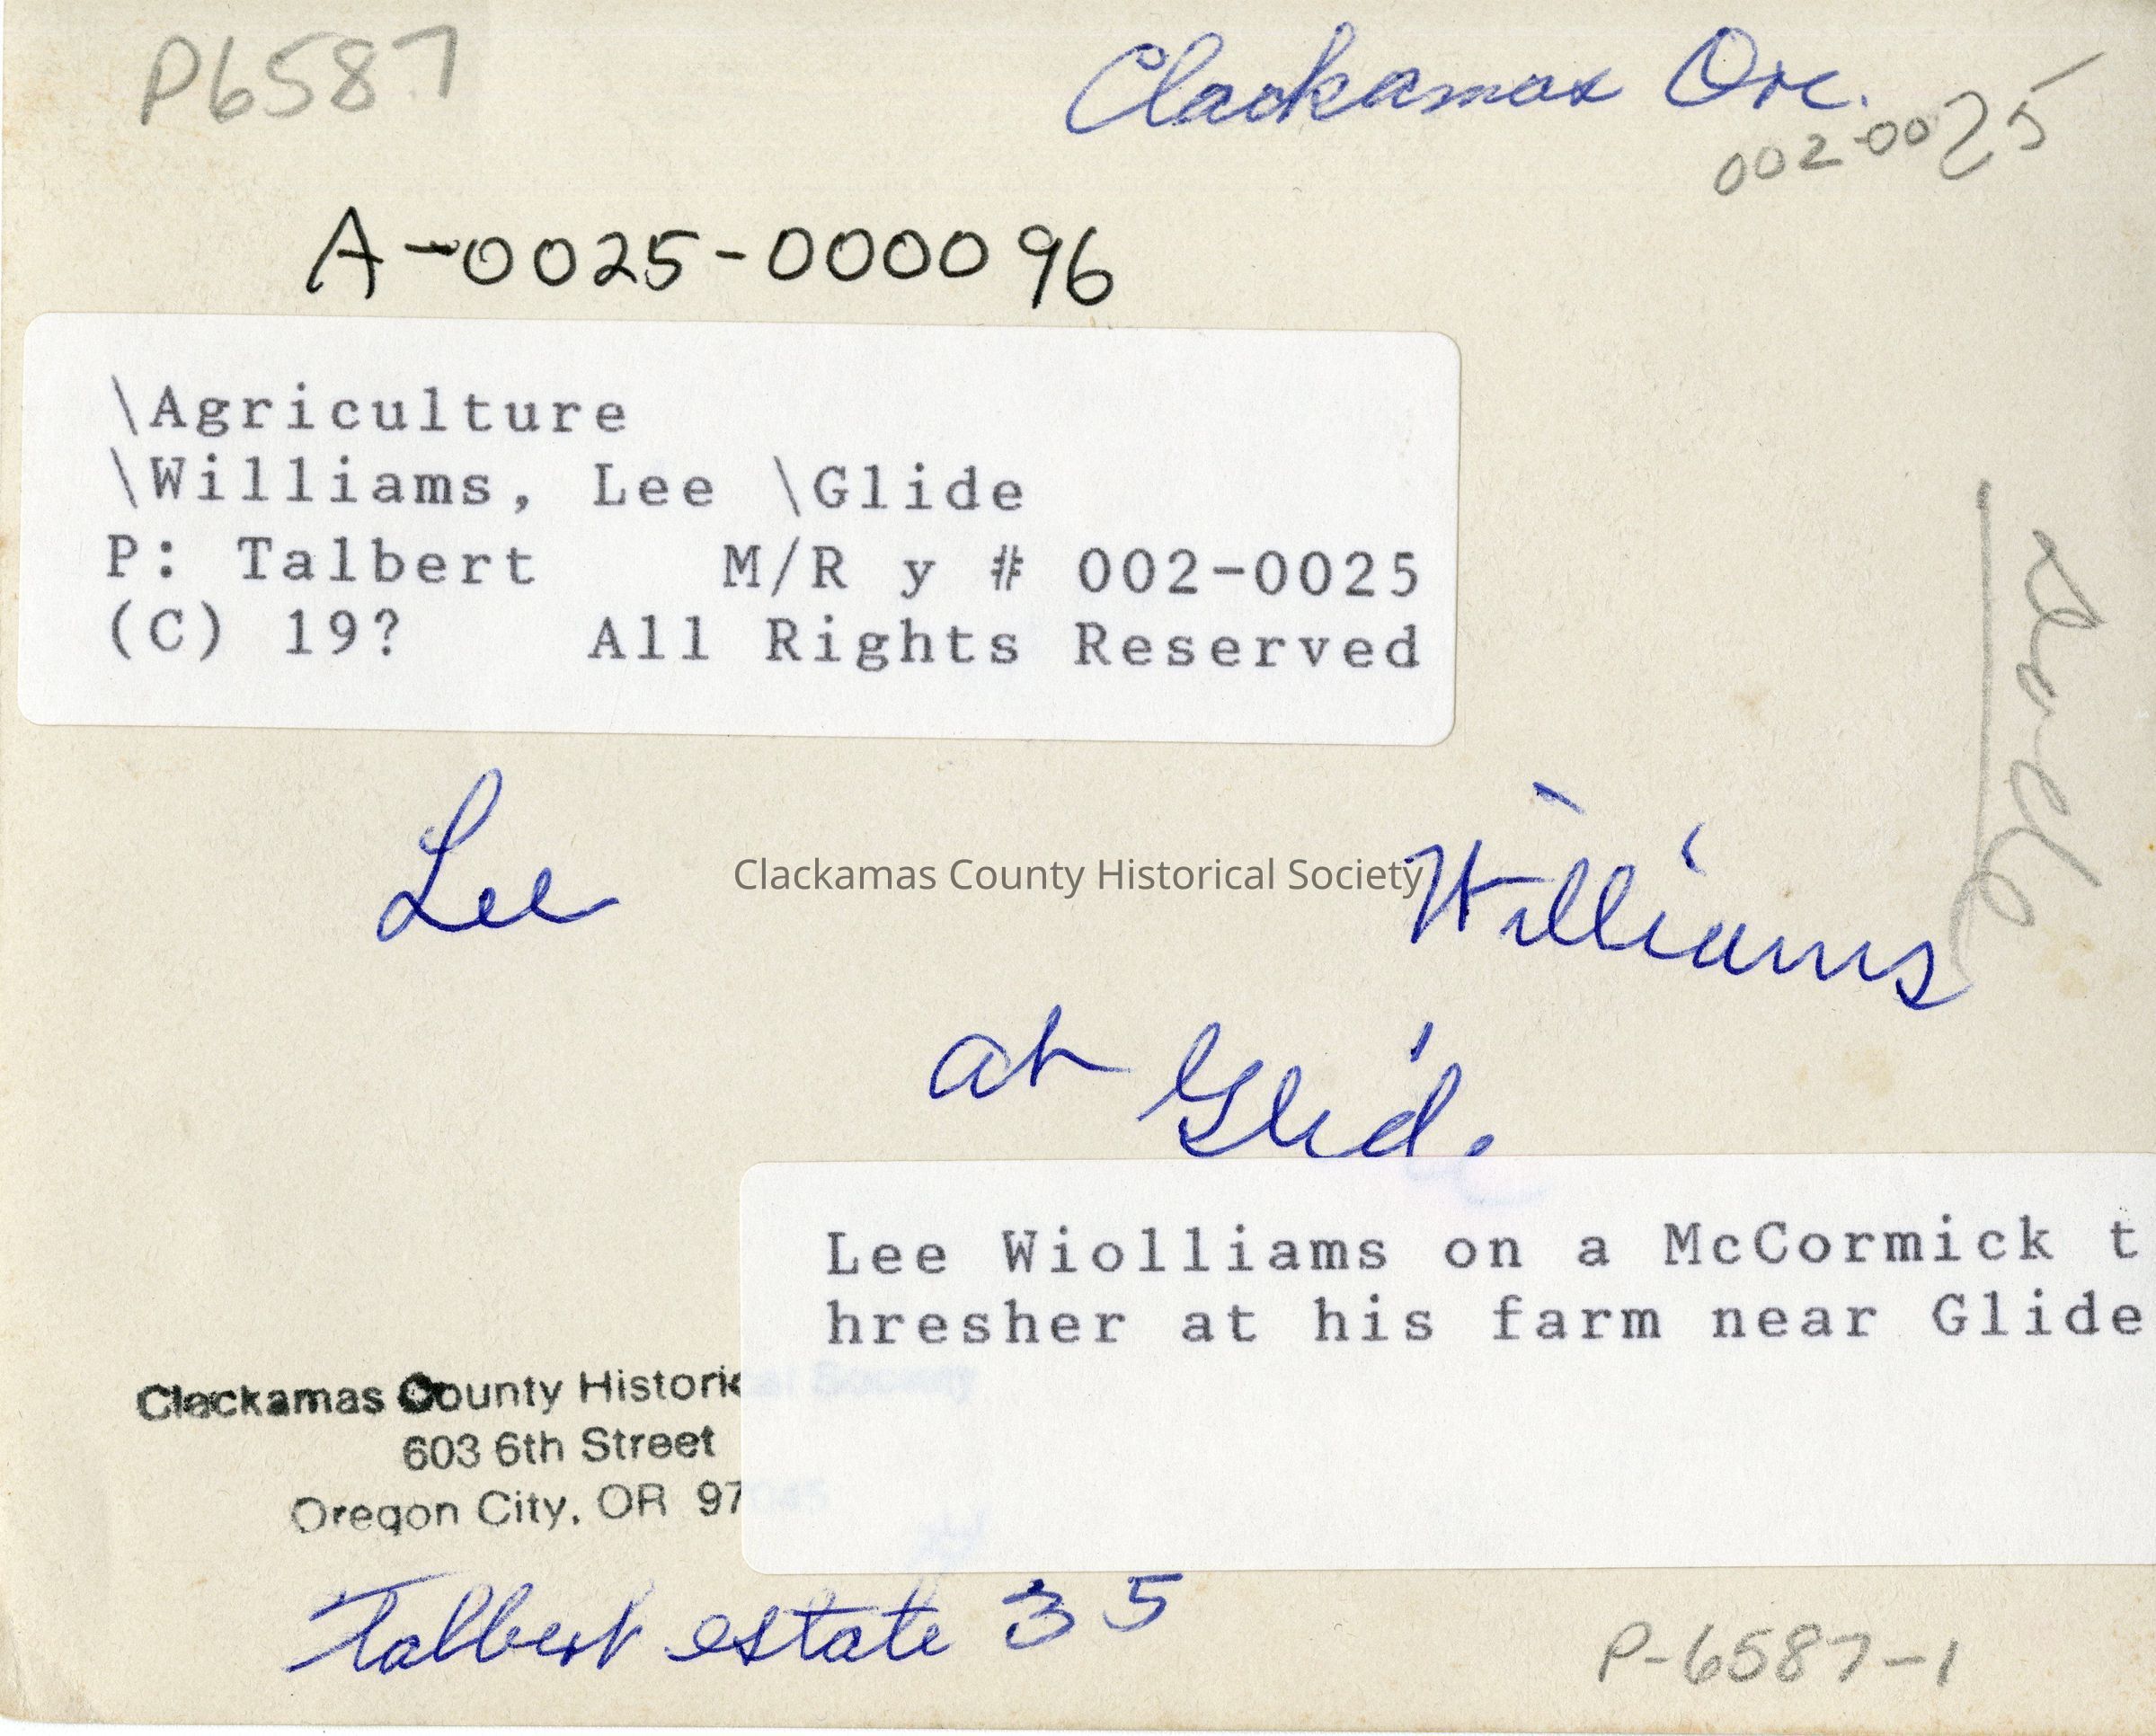 P6587
Clackamas Ore.
002-0025
A-0025-000096
\Agriculture
\Williams, Lee \Glide
P: Talbert M/R y # 002-0025
(C) 19? All Rights Reserved
Lee Williams
Clackamas County Historical Society
at Glid
Lee Wiolliams on a McCormick t
hresher at his farm near Glide
Clackamas County Historic
603 6th Street
Oregon City, OR 97
Talbert estate 35
P-6587-1